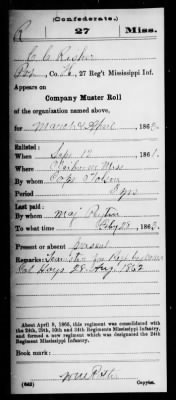 (Confederate.)
R 27 Miss.
C. C.
Pvt., Co. K, 27 Reg't Mississippi Inf.
Appears on
Company Muster Roll
of the organization named above,
for March & April, 186
Enlisted:
When Sept 12, 1861.
Where Miss
By whom Capt
Period 3 yrs
Last paid:
By whom Maj
To what time Feby 28, 1863.
Present or absent present
Remarks: Teamster for
Col Hays 28 Aug 1862
About April 9, 1865, this regiment was consolidated with
the 24th, 29th, 30th and 34th Mississippi Infantry,
and formed a new regiment which was designated the 24th
Regiment Mississippi Infantry.
Book mark:
(642) Copyist.